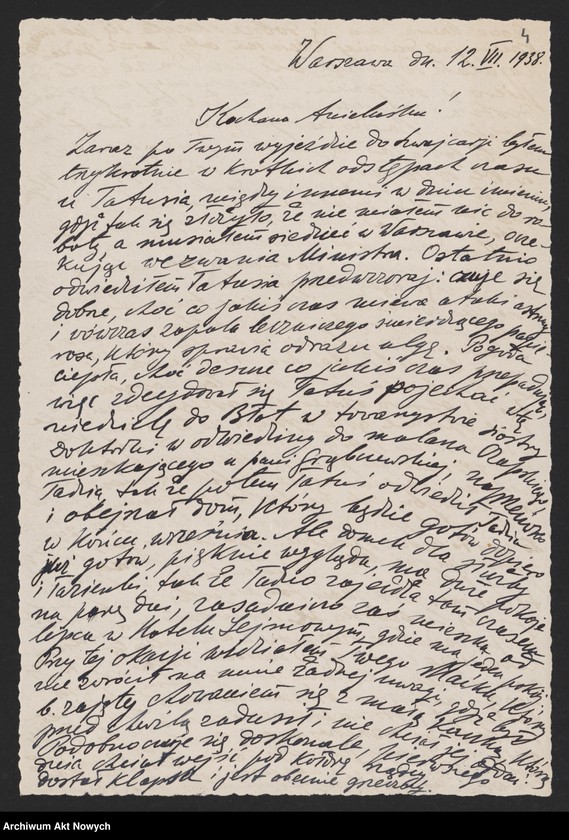 4
Warszawa dn. 12. VII. 1938.
Kochana Anielciu!
Zaraz po Twym wyjeździe do Szwajcarji byłem
trzykrotnie w krótkich odstępach czasu
u Tatusia, między innemi w dniu imienin,
gdyż tak się złożyło, że nie miałem nic do so-
boty, a musiałem siedzieć w Warszawie, ocze-
kując wezwania Ministra. Ostatnio
odwiedziłem Tatusia przedwczoraj: czuje się
dobrze, choć co jakiś czas miewa ataki astmy
i wówczas zapala leczniczego śmierdzącego papie-
rosa, który sprawia odrazu ulgę. Pogoda
ciepła, choć deszcz co jakiś czas przepaduje,
więc zdecydował się Tatuś pojechać w tę
niedzielę do Błot w towarzystwie siostry
Doktorki w odwiedziny do malarza
mieszkającego u pani Grąbczewskiej; naprzeciw
Tadzia, tak że potem Tatuś odwiedził Tadzia
i obejrzał dom, który będzie gotów dopiero
w końcu września. Ale domek dla służby
już gotów, pięknie wygląda, ma dwa pokoje
i łazienki, tak że Tadzio zajeżdża tam czasem
na parę dni, zasadniczo zaś mieszka od
lipca w Hotelu Sejmowym, gdzie ma jeden pokój.
Przy tej okazji widziałem Twego
nie zwrócił na mnie żadnej uwagi, gdyż był
b. zajęty chowaniem się z małą
przed chwilą zadusił i nie chciał jej oddać.
Podobno czuje się doskonale, pierwszego
dnia chciał wejść pod kołdrę
dostał klapsa i jest obecnie grzeczny.
Archiwum Akt Nowych